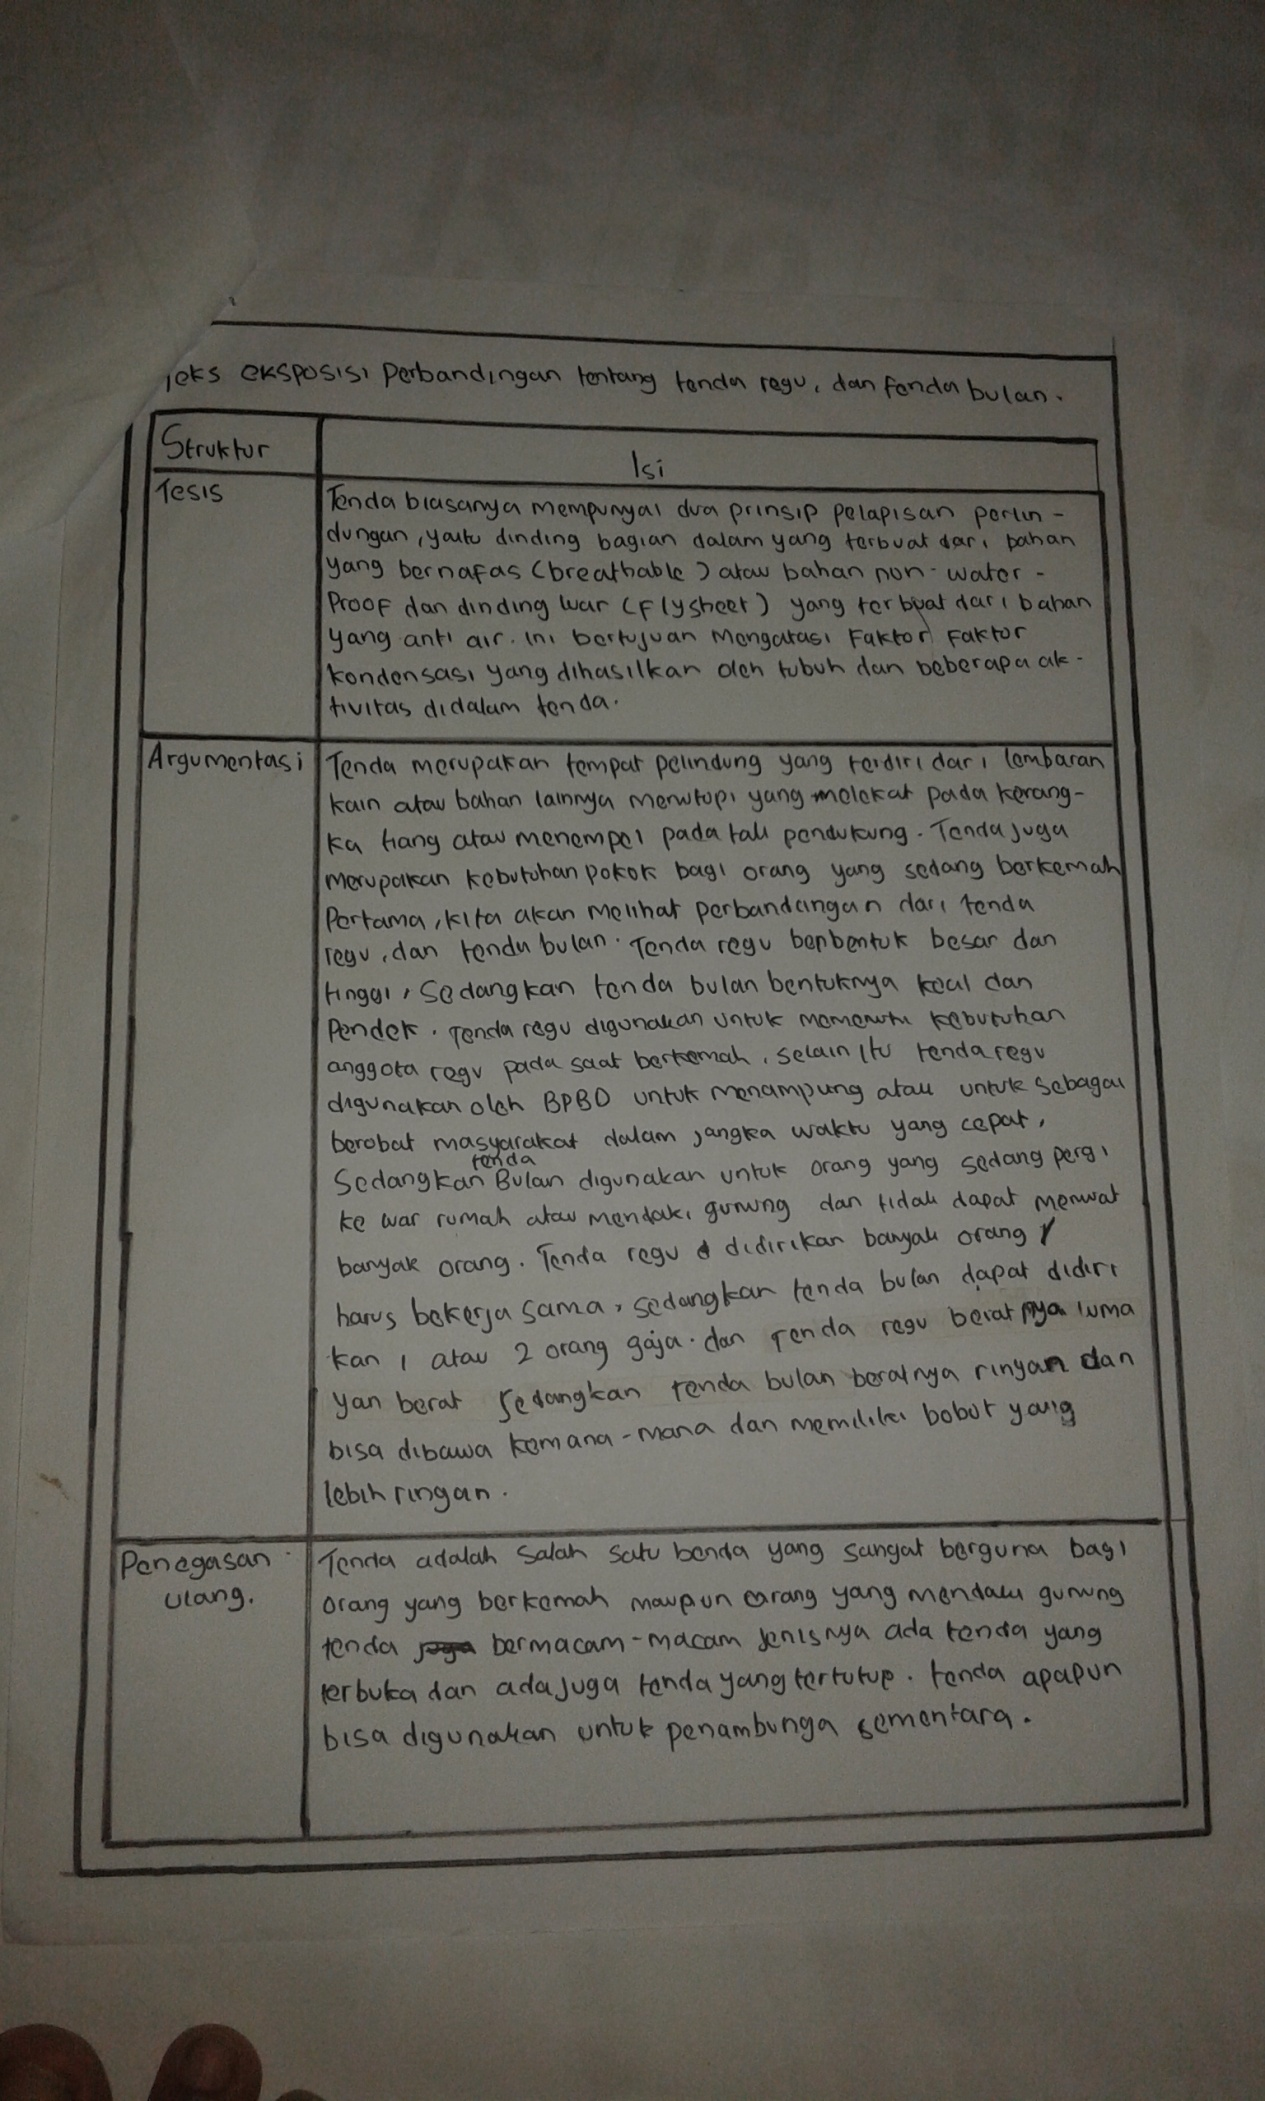 Teks eksposisi perbandingan tentang tenda regu, dan tenda bulan.
Struktur
Isi
Tesis
Tenda biasanya mempunyai dua prinsip pelapisan perlin-
dungan, yaitu dinding bagian dalam yang terbuat dari bahan
yang bernafas (breathable) atau bahan non-water-
Proof dan dinding luar (Flysheet) yang terbuat dari bahan
yang anti air. Ini bertujuan Mengatasi Faktor Faktor
kondensasi yang dihasilkan oleh tubuh dan beberapa ak-
tivitas didalam tenda.
Argumentasi
Tenda merupakan tempat pelindung yang terdiri dari lembaran
kain atau bahan lainnya menutupi yang melekat pada kerang-
ka tiang atau menempel pada tali pendukung. Tenda juga
merupakan kebutuhan pokok bagi orang yang sedang berkemah
Pertama, kita akan melihat perbandingan dari tenda
regu, dan tenda bulan. Tenda regu berbentuk besar dan
tinggi, Sedangkan tenda bulan bentuknya kecil dan
Pendek. Tenda regu digunakan untuk memenuhi kebutuhan
anggota regu pada saat berkemah, selain itu tenda regu
digunakan oleh BPBD untuk menampung atau untuk sebagai
berobat masyarakat dalam jangka waktu yang cepat,
Sedangkan tenda Bulan digunakan untuk orang yang sedang pergi
ke luar rumah atau mendaki gunung dan tidak dapat memuat
banyak orang. Tenda regu didirikan banyak orang
harus bekerja sama, sedangkan tenda bulan dapat didiri
kan 1 atau 2 orang gaja. dan Tenda regu beratnya luma
yan berat Sedangkan tenda bulan beratnya ringan dan
bisa dibawa kemana-mana dan memiliki bobot yang
lebih ringan.
Penegasan
ulang.
Tenda adalah Salah satu benda yang sangat berguna bagi
orang yang berkemah maupun orang yang mendaki gunung
tenda bermacam-macam jenisnya ada tenda yang
terbuka dan ada juga tenda yang tertutup. tenda apapun
bisa digunakan untuk penambunga sementara.